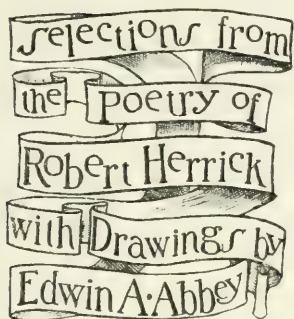 Selections from
the Poetry of
Robert Herrick
with Drawings by
Edwin A. Abbey